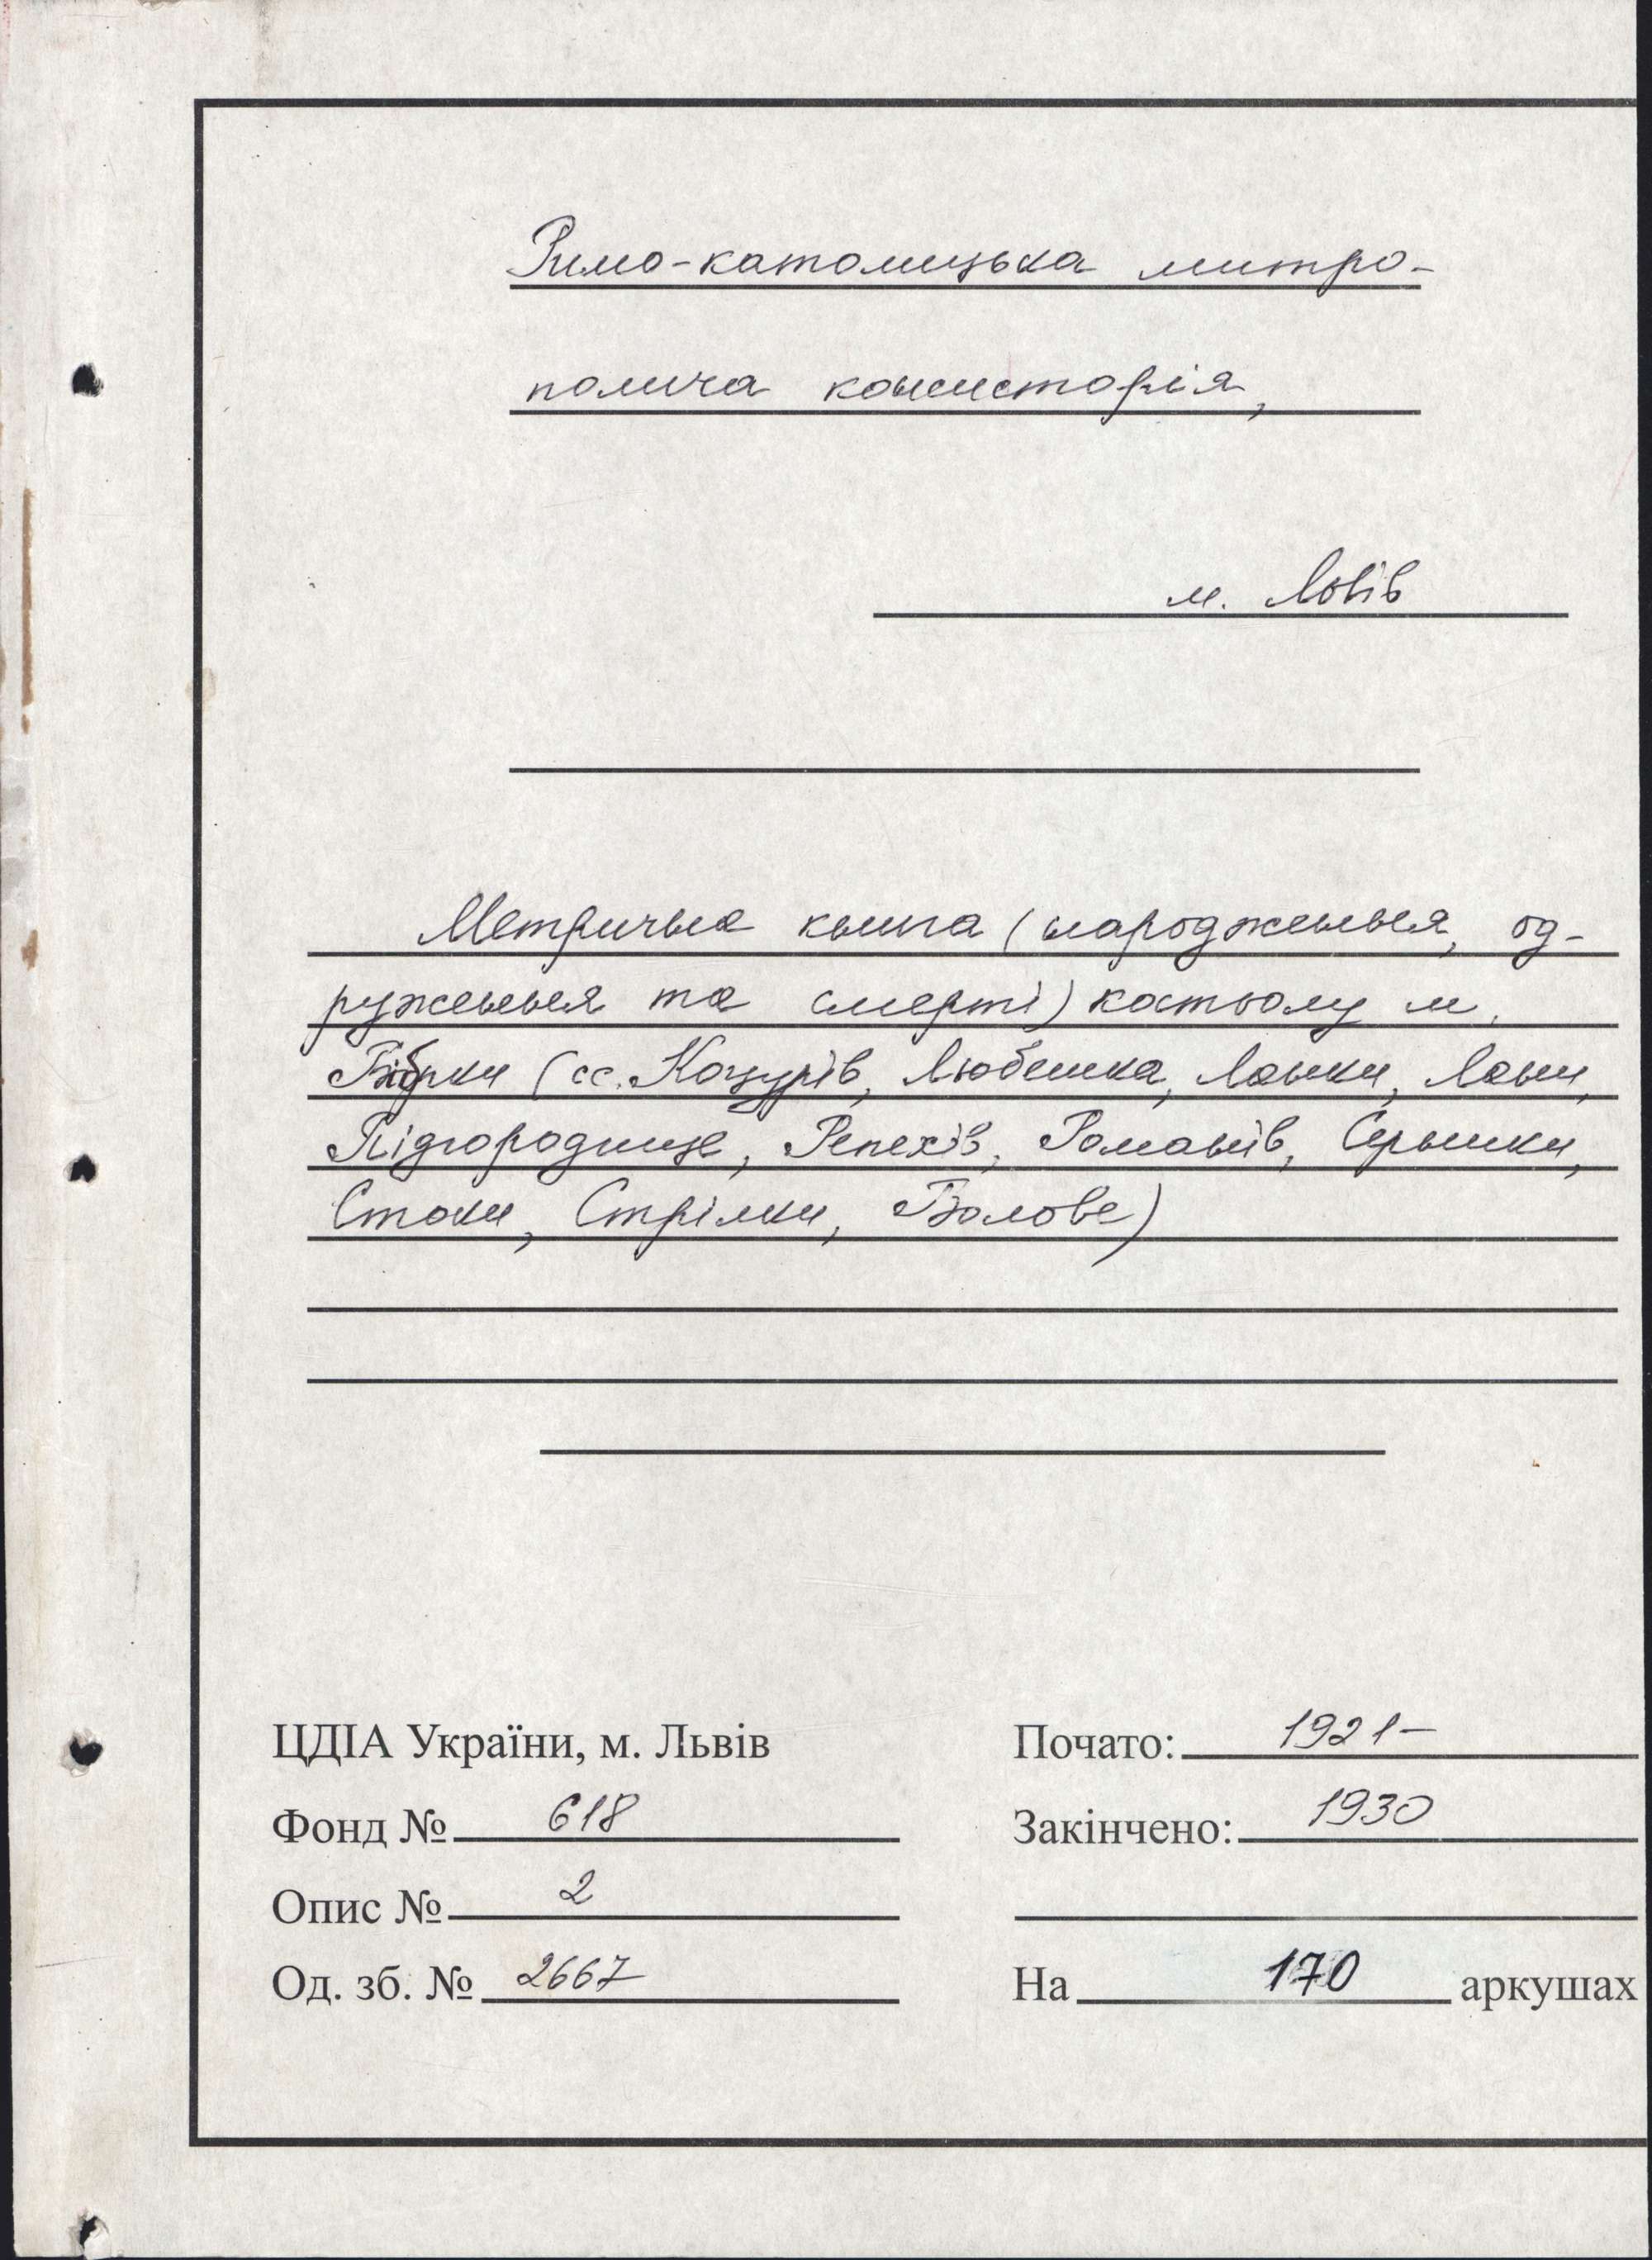 Римо-католицька митро-
полича консисторія,
м. Львів
Метрична книга (народження, од-
руження та смерті) костьолу м.
Бібрки (сс. Коцурів, Любешка, Ланки, Лани,
Підгородище, Репехів, Романів, Серники,
Стоки, Стрілки, Волове)
ЦДІА України, м. Львів
Почато: 1921-
Фонд № 618
Закінчено: 1930
Опис № 2
Од. зб. № 2667
На 170 аркушах